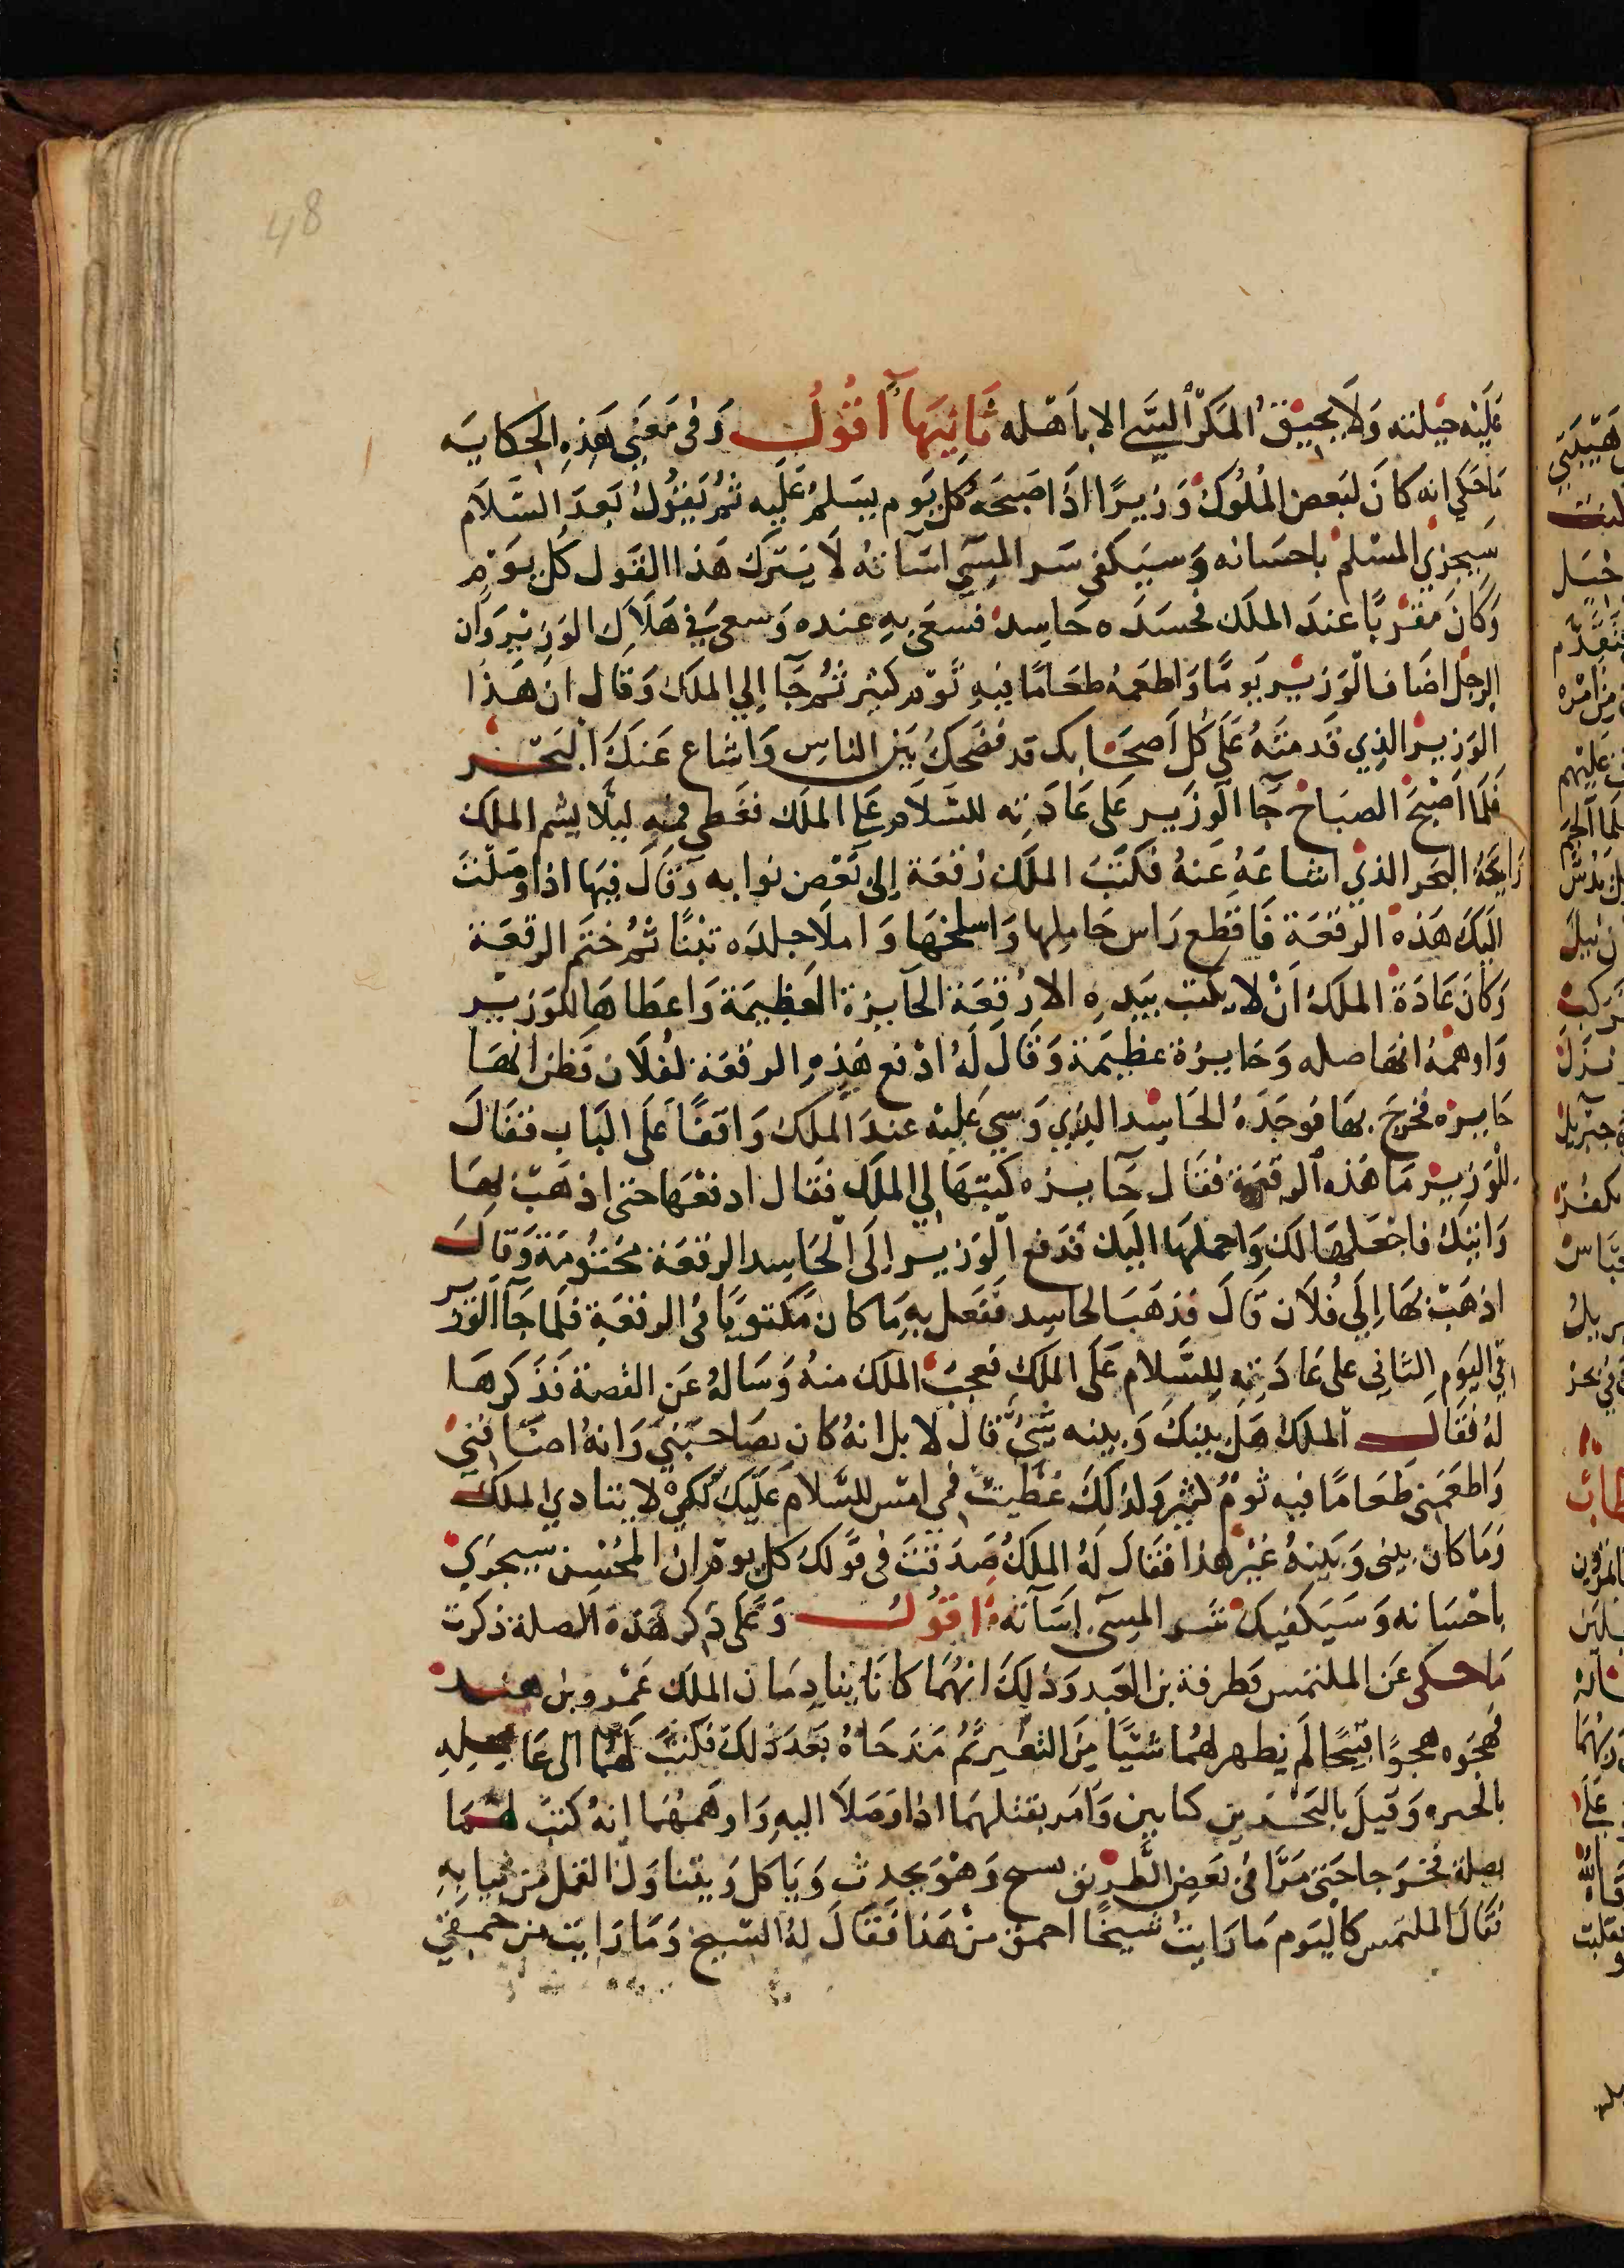 48
عليه حيلته وَلَا يحيق المكر السَّي الا باهله ثَانِيهَا أقُولُ وَفى مَعنَى هَذِهِ الحكايَه
مَا حكي انه كانَ لبَعض المُلُوكْ وَزيرًا اذَا صبحَهُ كلَّ يَوم يسَلمُ عَلَيه ثُمَّ يَقُولُ بَعدَ السَّلاَم
سيجزي المسْلم باحسَانه وَسيَكفى سَر المسَي اسَآتهُ لَا يَترك هَذا القَول كُل يَوْمِ
وَكَانَ مقرَّبًا عندَ الملَك فحسَدَه حَاسِد فسَعَى بِهِ عنده وَسعى في هَلَاك الوَزِيْر وَان
الرجل اضَاف الوَزير يَومًا وَاطعمهُ طعَامًا فيهِ ثَوم كثير ثُمَّ جَآ إلي الملَك وَقال ان هَذَا
الوَزير الذِي قَدمتَهُ عَلَى كُل أصحَابك قد فضَحَكَ بَيْن الناسِ وَاشَاع عَنكَ البَخَر
فَلَما اصْبحَ الصبَاحْ جَآ الوَزَير عَلى عَادَته للسَّلَام عَلى الملَك فغَطى فمهِ ليلَّا يشم الملَك
رَايحَهُ البَخر الذي اشاعَهُ عَنهُ فكتَبَ الملَك رُقعَة إلى بَعض نوابه وَقَالَ فيَها اذا وَصَلَتْ
اليَكَ هَذه الرقعَة فَاقطع رَاس حَاملِها وَاسلخهَا وَاملَا جلدَه تبْنًا ثُمَّ ختَم الرقعَة
وَكانَ عَادَة الملَك اَنْ لا يكتب بيَدِهِ الا رُقعَة الجآيزة العَظِيمَة وَاعطَاهَا للوَزير
وَاوهمهُ انهَا صله وَجَايزة عظيمَة وَقَالَ لَهُ ادْفع هَذِهِ الرقعَة لفُلَان فَظن انهَا
جَايزه فخرجَ بهَا فوَجَدَهُ الحَاسِد الذِي وَسى عَليْه عندَ الملَك وَاقفًا عَلَى البَاب فقَالَ
للوَزير مَا هَذه الرقعَة فقَال جَآيزه كتبَهَا لي الملَك فقَال ادفعْهَا حتى اذهَبْ بهَا
وَانيبك فاجْعَلهَا لَك وَاحملهَا اليَك فَدَفع الوَزير إلَى الحَاسد الرقعَة مختُومَة وَقالَ
اذهَبْ بهَا إلَى فُلَان قَالَ فذهَبَ الحاسِد فَفعل بهِ مَا كان مَكتوبًا في الرقعَة فلمَا جَآ الوَزير
في اليَوم الثانِى على عَادَتِه لِلسَّلام عَلَى الملَك فعجبَ الملَك منهُ وَسَالهُ عَن القصة فَذَكرهَا
لَهُ فَقَالَ الملَكْ هَلْ بيَنكَ وَبينه شَيْ قَالَ لا بل انهُ كان يصَاحبَني وَانهُ اضَافني
وَاطعَمَني طَعَامًا فيه ثَوْمُ كثير وَلذلكَ غطيتْ فمي امس للسَّلام عَلَيكَ لكي لا يتنادي الملَك
وَمَا كان بينى وَبَينهُ غَيْر هَذا فقَالَ لَهُ الملَكُ صَدَقتَ فى قَولكَ كل يوم ان المُحْسِن سيجزي
باحْسَانه وَسَيَكفيكْ شَر المسَي اسَآتَه اقُولُ وَعَلَى ذَكر هَذه الصلة ذكرت
مَا حكى عَن الملتمس وَطرفة بن العَبد وَذَلكَ انهُمَا كانَا يَنادِمَان الملَك عَمْرو بن هند
فهجَوه هجوًا قبيحًا لَم يظهر لهُمَا شَيًّا مِنَ التغَير ثُمَّ مَدَحَاهُ بَعدَ ذَلكَ فكتبَ لهُمَا الى عَامِلِهِ
بالحيره وَقيلَ بالبَحْرَين كتابين وَامَر بقتلهمَا اذا وَصَلَا اليهِ وَاوهَمهُمَا انهُ كتبَ لهُمَا
بصلة فخَرَجا حَتى مَرَّا في بَعض الطرِيق بسيخ وَهْوَ يحدث وَيَاكل وَيتنَاوَل القمل من ثيابهِ
فقَالَ الملتمس كاليَوم مَا رَايتُ شيخًا احمق منْ هَذا فقَالَ لَهُ الشيخ وَمَا رَايت من حمقي